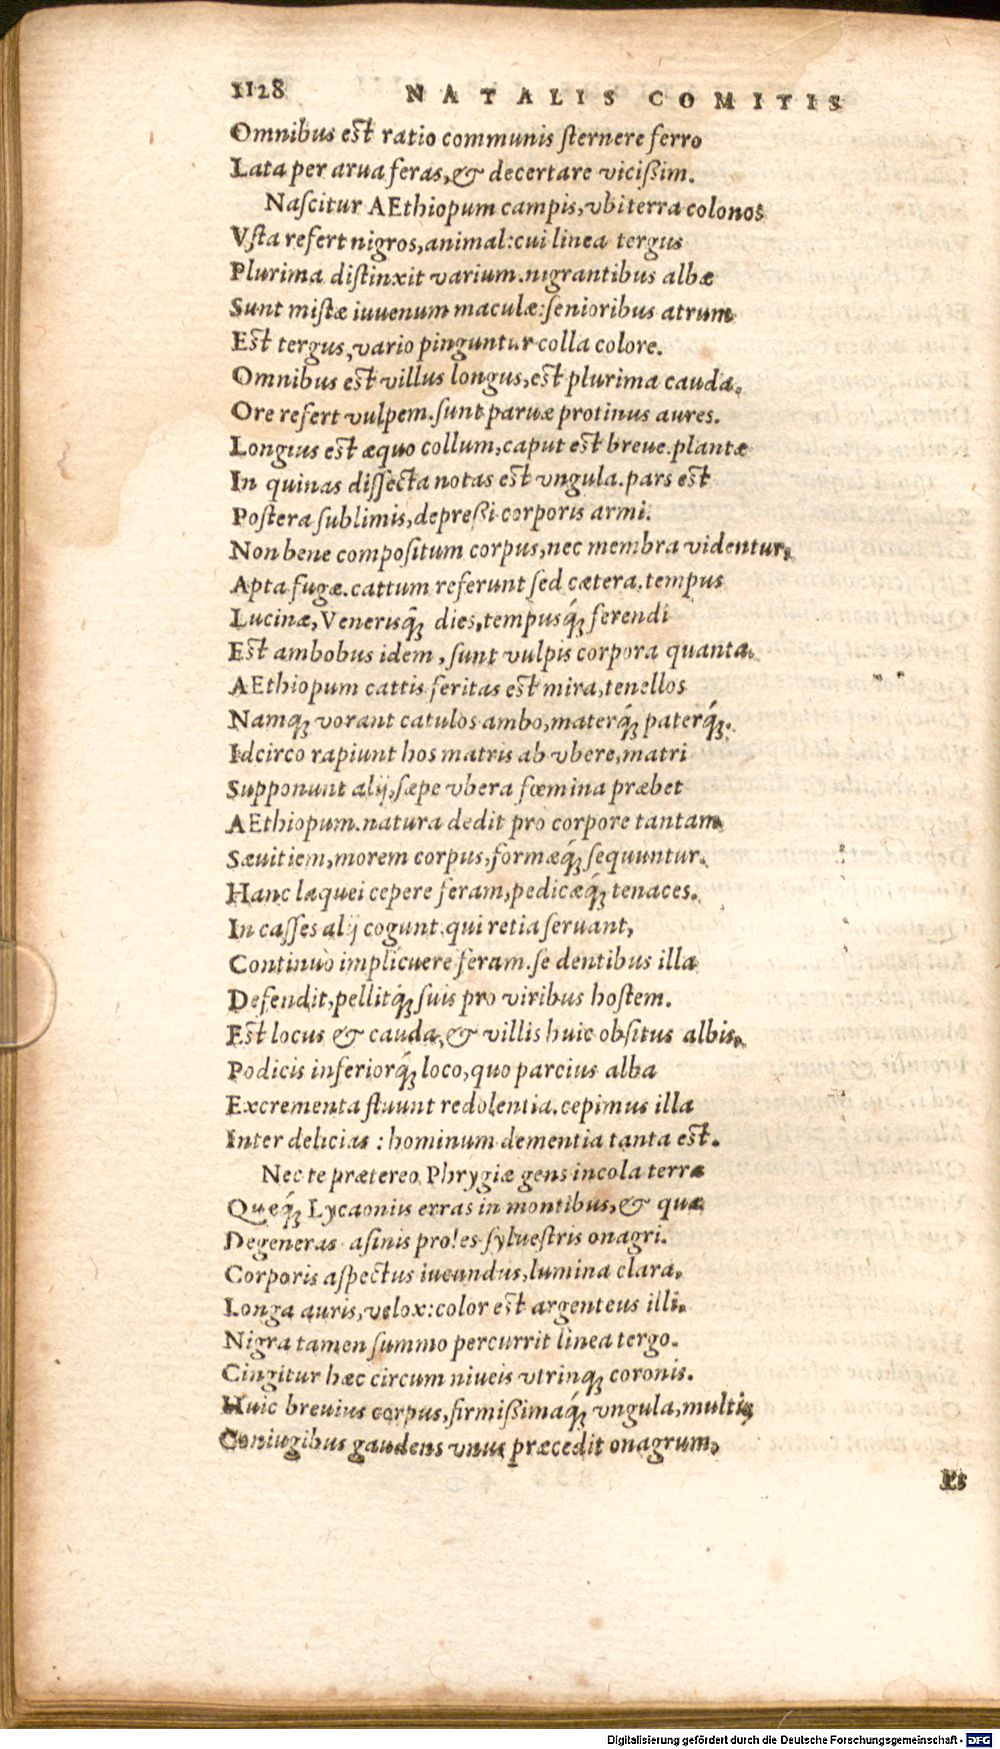 1128 NATALIS COMITIS
Omnibus est ratio communis sternere ferro
Lata per arua feras, & decertare vicißim.
Nascitur AEthiopum campis, vbi terra colonos
Vsta refert nigros, animal: cui linea tergus
Plurima distinxit varium. nigrantibus albæ
Sunt mistæ iuuenum maculæ: senioribus atrum
Est tergus, vario pinguntur colla colore.
Omnibus est villus longus, est plurima cauda.
Ore refert vulpem. sunt paruæ protinus aures.
Longius est æquo collum, caput est breue. plantæ
In quinas dissecta notas est vngula. pars est
Postera sublimis, depreßi corporis armi.
Non bene compositum corpus, nec membra videntur,
Apta fugæ. cattum referunt sed cætera. tempus
Lucinæ, Venerisq́; dies, tempusq́; ferendi
Est ambobus idem, sunt vulpis corpora quanta.
AEthiopum cattis feritas est mira, tenellos
Namq; vorant catulos ambo, materq́; paterq́;.
Idcirco rapiunt hos matris ab vbere, matri
Supponunt alij, sæpe vbera fœmina præbet
AEthiopum. natura dedit pro corpore tantam
Sæuitiem, morem corpus, formæq́; sequuntur.
Hanc laquei cepere feram, pedicæq́; tenaces.
In casses alij cogunt. qui retia seruant,
Continuò implicuere feram. se dentibus illa
Defendit, pellitq́; suis pro viribus hostem.
Est locus & cauda, & villis huic obsitus albis,
Podicis inferiorq́; loco, quo parcius alba
Excrementa fluunt redolentia. cepimus illa
Inter delicias: hominum dementia tanta est.
Nec te prætereo Phrygiæ gens incola terræ
Quæq́; Lycaoniis erras in montibus, & quæ
Degeneras asinis proles syluestris onagri.
Corporis aspectus iucundus, lumina clara,
Longa auris, velox: color est argenteus illi.
Nigra tamen summo percurrit linea tergo.
Cingitur hæc circum niueis vtrinq; coronis.
Huic breuius corpus, firmißimaq́; vngula, multis
Coniugibus gaudens vnus præcedit onagrum,
Es
Digitalisierung gefördert durch die Deutsche Forschungsgemeinschaft - DFG